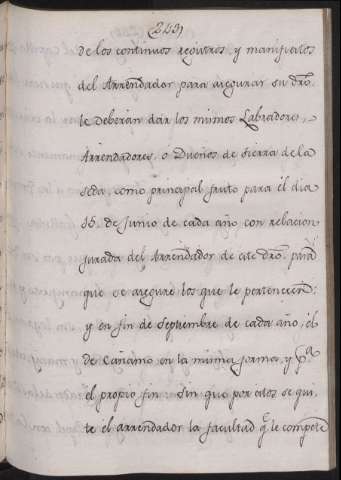 (253)
de los continuos registros, y manifiestos
del Arrendador para asegurar su dro.
le deberan dar los mismos Labradores,
Arrendadores, o Dueños de tierra de la
seda, como principal fruto para el dia
15. de Junio de cada año con relacion
jurada del Arrendador de este dro. para
que se asegure los que le pertenecen:
y en fin de Septiembre de cada año, el
de Cañamo en la misma forma, y pa.
el propio fin: sin que por estos se qui
te el arrendador la facultad q.e le compete